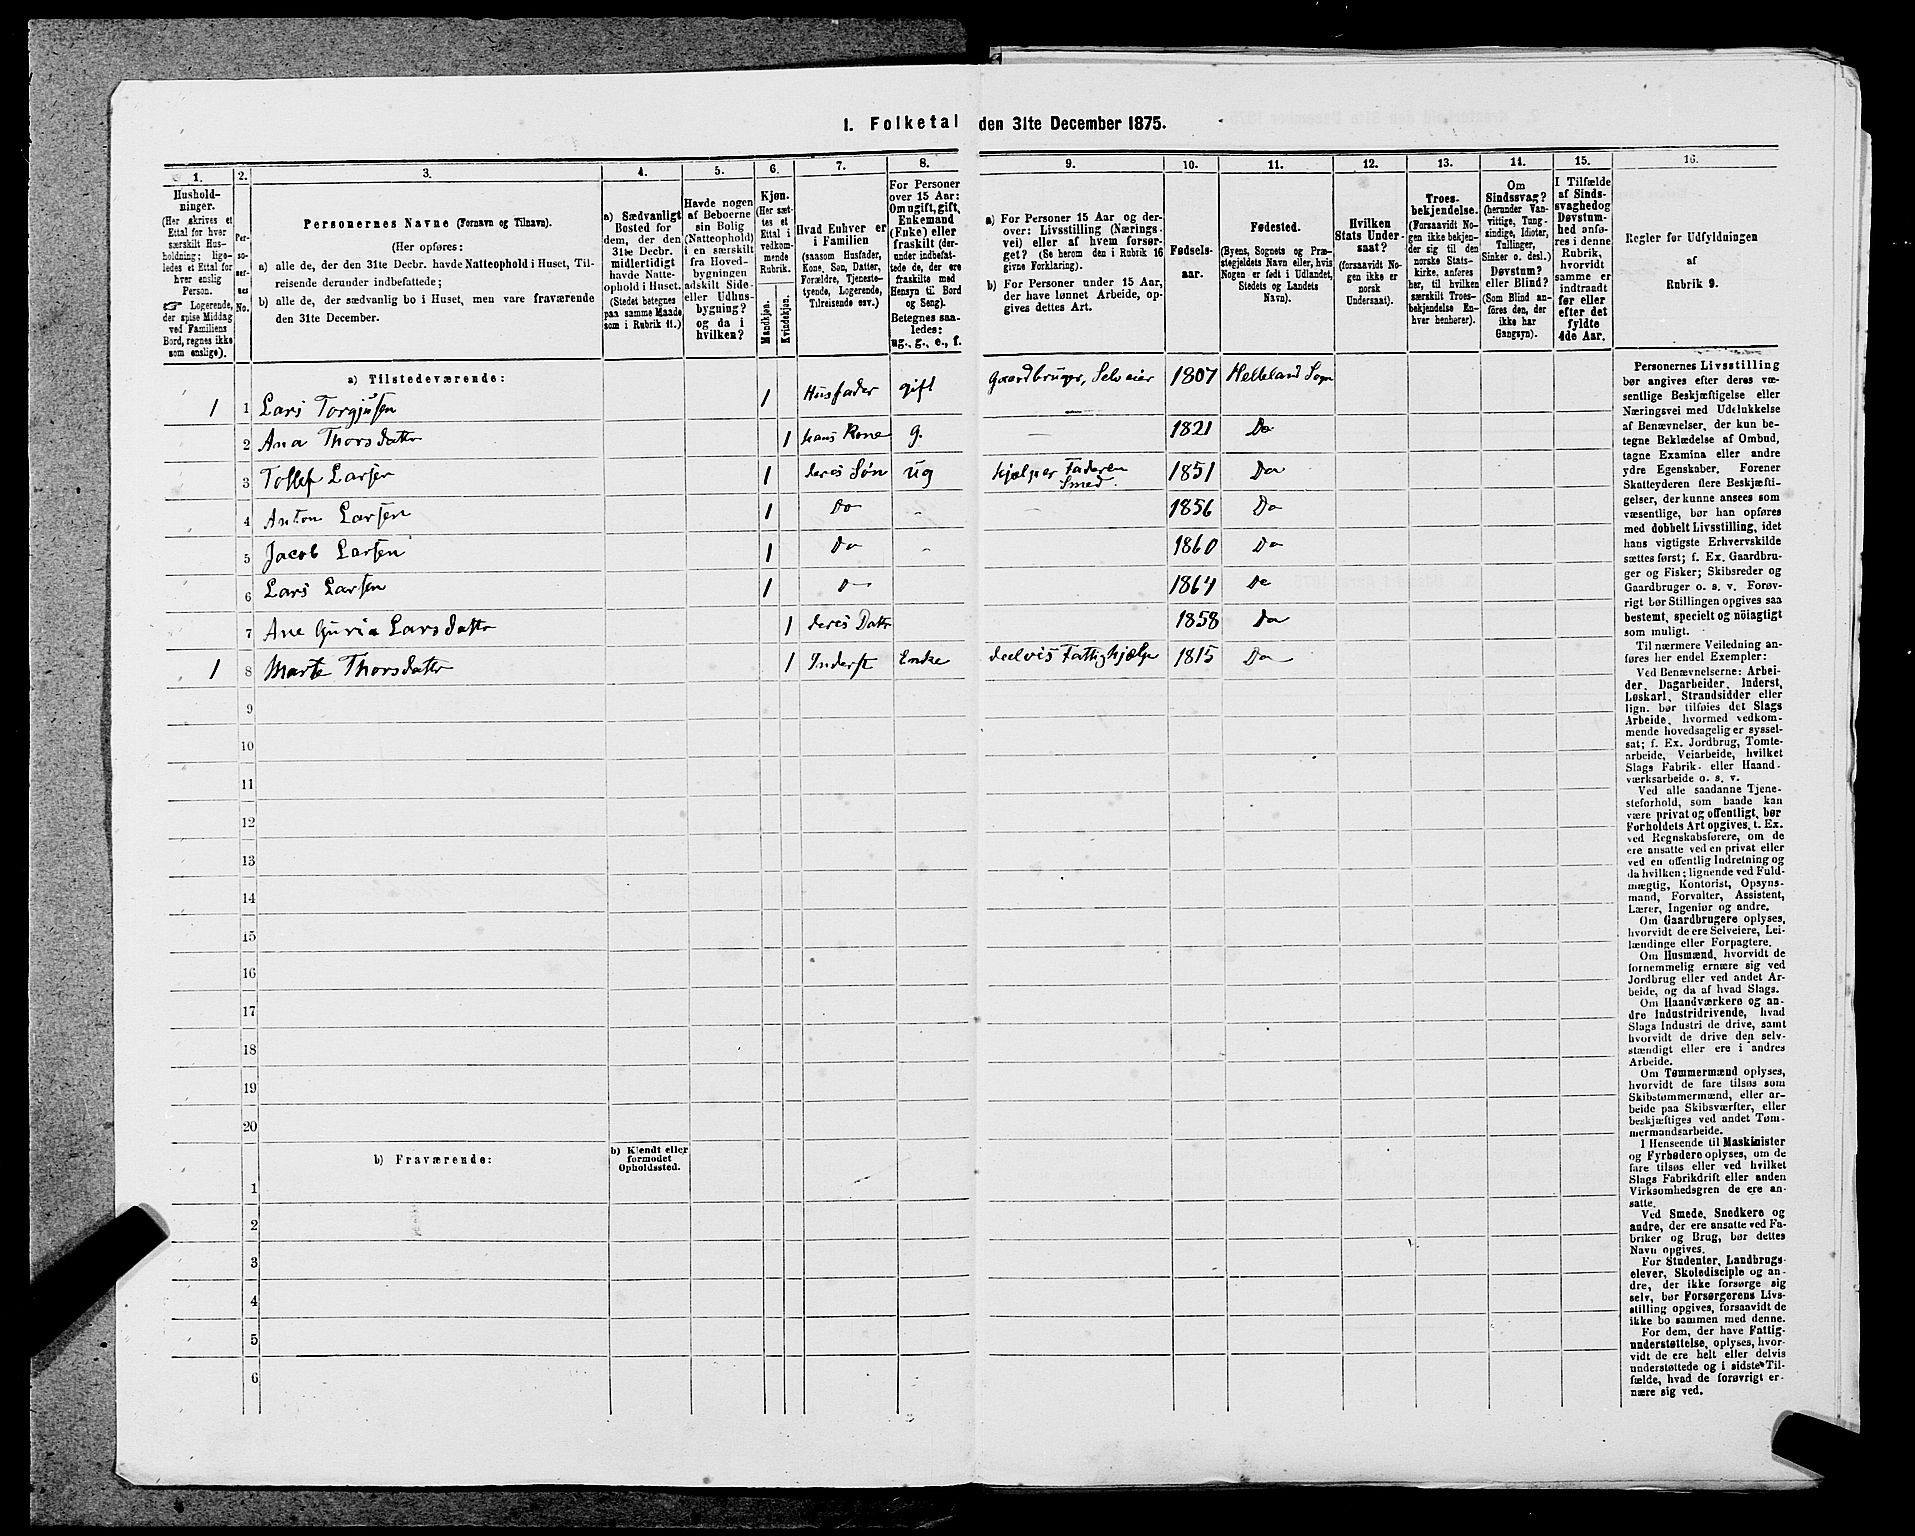 1. Folketal den 31te December 1875.
1.
2.
3.
4.
5.
6.
7.
8.
9.
10.
11.
12.
13.
14.
15.
16.
Hushold-
ninger.
(Her skrives et
Ettal for hver
særskilt Hus-
holdning; lige-
ledes et Ettal for
hver enslig
Person.
☞ Logerende,
der spise Middag
ved Familiens
Bord, regnes ikke
som enslige).
Per-
so-
ner-
nes
No.
Personernes Navne (Fornavn og Tilnavn).
(Her opføres:
a) alle de, der den 31te Decbr. havde Natteophold i Huset, Til-
reisende derunder indbefattede;
b) alle de, der sædvanlig bo i Huset, men vare fraværende
den 31te December.
a) Sædvanligt
Bosted for
dem, der den
31te Decbr.
midlertidigt
havde Natte-
ophold i Huset.
(Stedet betegnes
paa samme Maade
som i Rubrik 11.)
Havde nogen
af Beboerne
sin Bolig
(Natteophold)
i en særskilt
fra Hoved-
bygningen
adskilt Side-
eller Udhus-
bygning?
og da i
hvilken?
Kjøn.
(Her sæt-
tes et
Ettal i
vedkom-
mende
Rubrik.
Mandkjøn.
Kvindekjøn.
Hvad Enhver er
i Familien
(saasom Husfader,
Kone, Søn, Datter,
Forældre, Tjeneste-
tyende, Logerende,
Tilreisende osv.)
For Personer
over 15 Aar:
Om ugift, gift,
Enkemand
(Enke) eller
fraskilt (der-
under indbefat-
tede de, der ere
fraskilte med
Hensyn til Bord
og Seng).
Betegnes saa-
ledes:
ug., g., e., f.
a) For Personer 15 Aar og der-
over: Livsstilling (Nærings-
vei) eller af hvem forsør-
get? (Se herom den i Rubrik 16
givne Forklaring).
b) For Personer under 15 Aar,
der have lønnet Arbeide, op-
gives dettes Art.
Fødsels-
aar.
Fødested.
(Byens, Sognets og Præ-
stegjeldets Navn eller, hvis
Nogen er født i Udlandet,
Stedets og Landets
Navn).
Hvilken
Stats Under-
saat?
(forsaavidt No-
gen ikke er
norsk
Undersaat).
Troes-
bekjendelse.
(Forsaavidt No-
gen ikke bekjen-
der sig til den
norske Stats-
kirke, anføres
her, til hvilken
særskilt Troes-
bekjendelse En-
hver henhører).
Om
Sindssvag?
(herunder Van-
vittige, Tung-
sindige, Idioter,
Tullinger,
Sinker o. desl.)
Døvstum?
eller Blind?
(Som Blind an-
føres den, der
ikke har
Gangsyn).
I Tilfælde
af Sinds-
svaghed og
Døvstum-
hed anfø-
res i denne
Rubrik,
hvorvidt
samme er
indtraadt
før eller
efter det
fyldte
4de Aar.
Regler for Udfyldningen
af
Rubrik 9.
a) Tilstedeværende:
1 1 Lars Torgjusen 1 Husfader gift Gaardbruger, Selveier 1807 Helleland Sogn
2 Ana Thorsdattr 1 hans Kone g. — 1821 Do
3 Tollef Larsen 1 deres Søn ug hjælper Faderen 1851 Do
Smed.
4 Anton Larsen 1 Do „ — 1856 Do
5 Jacob Larsen 1 Do „ 1860 Do
6 Lars Larsen 1 D— 1864 Do
7 Ane Guria Larsdattr 1 deres Dattr 1858 Do
1 8 Marte Thorsdattr 1 Inderst Enke deelvis Fattighjælp 1815 Do
9
10
11
12
13
14
15
16
17
18
19
20
b) Fraværende:
b) Kjendt eller
formodet
Opholdssted.
1
2
3
4
5
6
Personernes Livsstilling
bør angives efter deres væ-
sentlige Beskjæftigelse eller
Næringsvei med Udelukkelse
af Benævnelser, der kun be-
tegne Beklædelse af Ombud,
tagne Examina eller andre
ydre Egenskaber. Forener
Skatteyderen flere Beskjæfti-
gelser, der kunne ansees som
væsentlige, bør han opføres
med dobbelt Livsstilling, idet
hans vigtigste Erhvervskilde
sættes først; f. Ex. Gaardbru-
ger og Fisker; Skibsreder og
Gaardbruger o. s. v. Forøv-
rigt bør Stillingen opgives saa
bestemt, specielt og nöiagtigt
som muligt.
Til nærmere Veiledning an-
føres her endel Exempler:
Ved Benævnelserne: Arbei-
der, Dagarbeider, Inderst,
Løskarl, Strandsidder eller
lign. bør tilføies det Slags
Arbeide, hvormed vedkom-
mende hovedsagelig er syssel-
sat; f. Ex. Jordbrug, Tomte-
arbeide, Veiarbeide, hvilket
Slags Fabrik- eller Haand-
værksarbeide o. s. v.
Ved alle saadanne Tjene-
steforhold, som baade kan
være privat og offentligt, bør
Forholdets Art opgives, t. Ex.
ved Regnskabsførere, om de
ere ansatte ved en privat eller
ved en offentlig Indretning og
da hvilken; lignende ved Fuld-
mægtig, Kontorist, Opsyns-
mand, Forvalter, Assistent,
Lærer, Ingeniør og andre.
Om Gaardbrugere oplyses,
hvorvidt de ere Selveiere, Lei-
lændinge eller Forpagtere.
Om Husmænd, hvorvidt de
fornemmelig ernære sig ved
Jordbrug eller ved andet Ar-
beide, og da af hvad Slags.
Om Haandværkere og an-
dre Industridrivende, hvad
Slags Industri de drive, samt
hvorvidt de drive den selv-
stændigt eller ere i andres
Arbeide.
Om Tømmermænd oplyses,
hvorvidt de fare tilsøs som
Skibstømmermænd, eller ar-
beide paa Skibsværfter, eller
beskjæftiges ved andet Tøm-
mermandsarbeide.
I Henseende til Maskinister
og Fyrbødere oplyses, om de
fare tilsøs eller ved hvilket
Slags Fabrikdrift eller anden
Virksomhedsgren de ere an-
satte.
Ved Smede, Snedkere og
andre, der ere ansatte ved Fa-
briker og Brug, bør dettes
Navn opgives.
For Studenter, Landbrugs-
elever, Skoledisciple og an-
dre, der ikke forsørge sig
selv, bør Forsørgerens Livs-
stilling opgives, forsaavidt de
ikke bo sammen med denne.
For dem, der have Fattig-
understøttelse, oplyses, hvor-
vidt de ere helt eller delvis
understøttede og i sidste Til-
fælde, hvad de forøvrigt er-
nære sig ved.